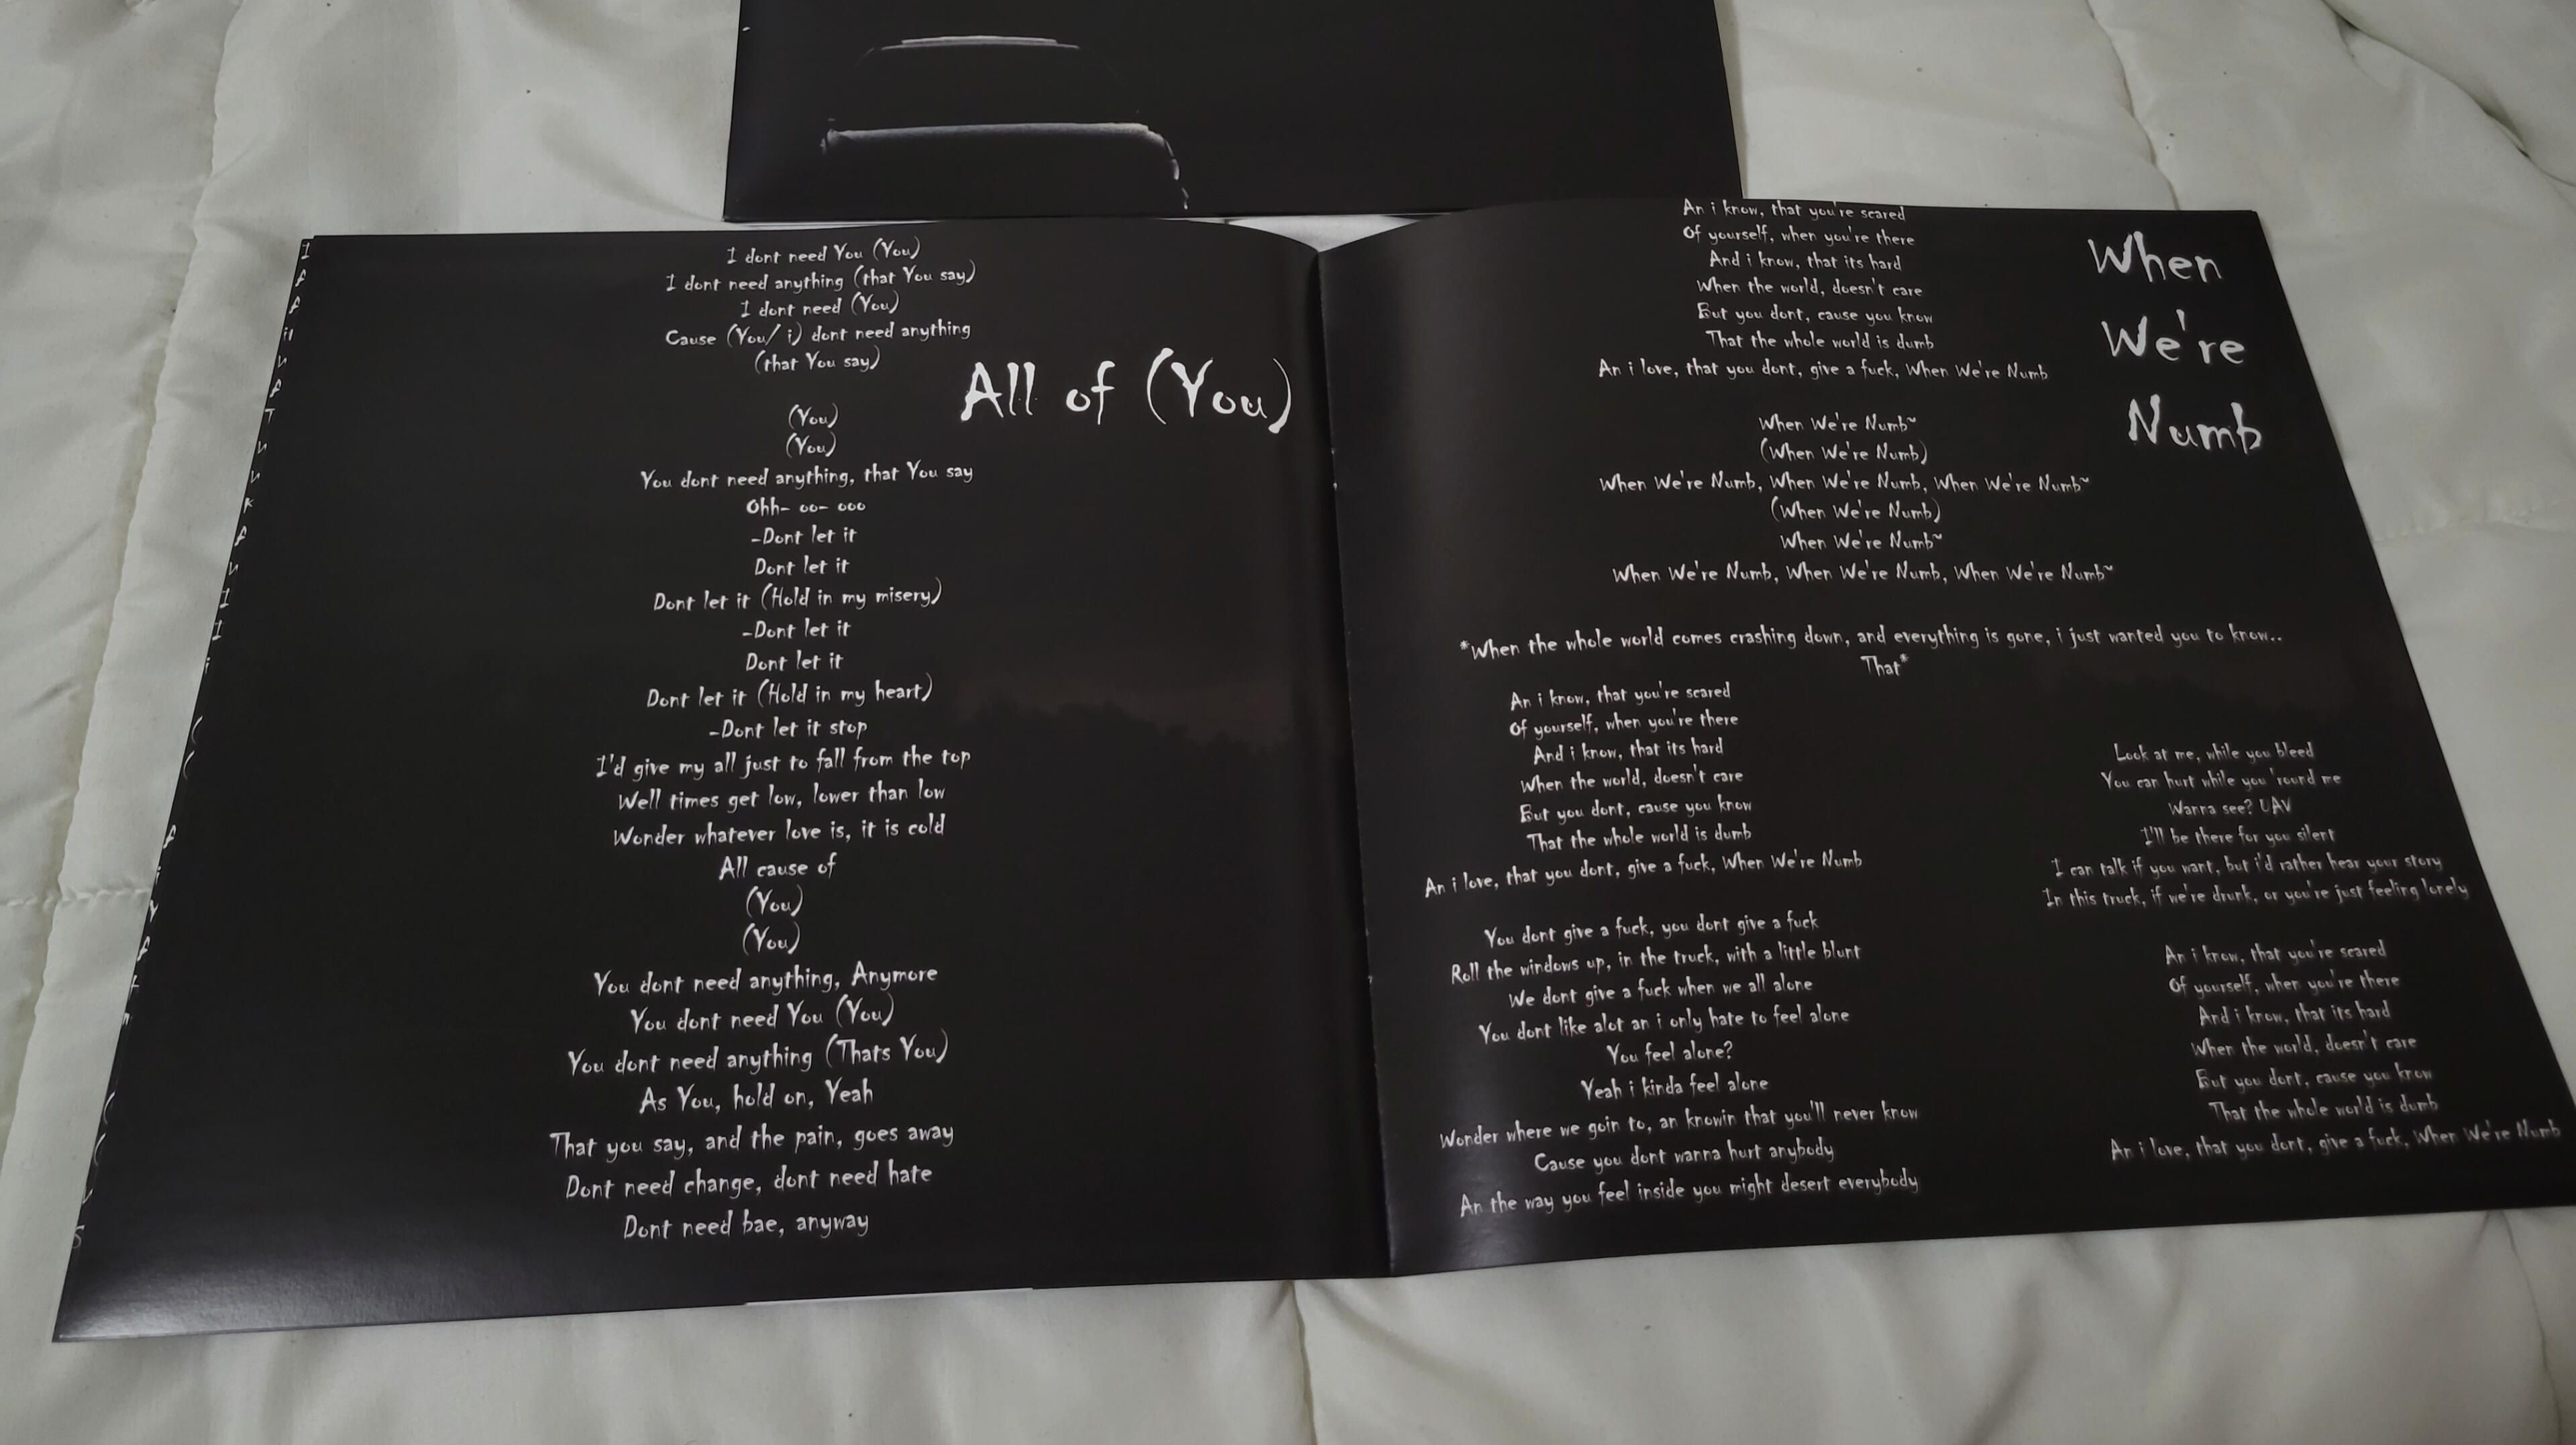 I dont need You (You)
I dont need anything (that You say)
I dont need (You)
Cause (You/ i) dont need anything
(that You say)
All of (You)
(You)
(You)
You dont need anything, that You say
Ohh- oo- ooo
-Dont let it
Dont let it
Dont let it (Hold in my misery)
-Dont let it
Dont let it
Dont let it (Hold in my heart)
-Dont let it stop
I'd give my all just to fall from the top
Well times get low, lower than low
Wonder whatever love is, it is cold
All cause of
(You)
(You)
You dont need anything, Anymore
You dont need You (You)
You dont need anything (Thats You)
As You, hold on, Yeah
That you say, and the pain, goes away
Dont need change, dont need hate
Dont need bae, anyway
When
We're
Numb
An i know, that you're scared
Of yourself, when you're there
And i know, that its hard
When the world, doesn't care
But you dont, cause you know
That the whole world is dumb
An i love, that you dont, give a fuck, When We're Numb
When We're Numb~
(When We're Numb)
When We're Numb, When We're Numb, When We're Numb~
(When We're Numb)
When We're Numb~
When We're Numb, When We're Numb, When We're Numb~
*When the whole world comes crashing down, and everything is gone, i just wanted you to know..
That*
An i know, that you're scared
Of yourself, when you're there
And i know, that its hard
When the world, doesn't care
But you dont, cause you know
That the whole world is dumb
An i love, that you dont, give a fuck, When We're Numb
You dont give a fuck, you dont give a fuck
Roll the windows up, in the truck, with a little blunt
We dont give a fuck when we all alone
You dont like alot an i only hate to feel alone
You feel alone?
Yeah i kinda feel alone
Wonder where we goin to, an knowin that you'll never know
Cause you dont wanna hurt anybody
An the way you feel inside you might desert everybody
Look at me, while you bleed
You can hurt while you 'round me
Wanna see? UAV
I'll be there for you silent
I can talk if you want, but i'd rather hear your story
In this truck, if we're drunk, or you're just feeling lonely
An i know, that you're scared
Of yourself, when you're there
And i know, that its hard
When the world, doesn't care
But you dont, cause you know
That the whole world is dumb
An i love, that you dont, give a fuck, When We're Numb